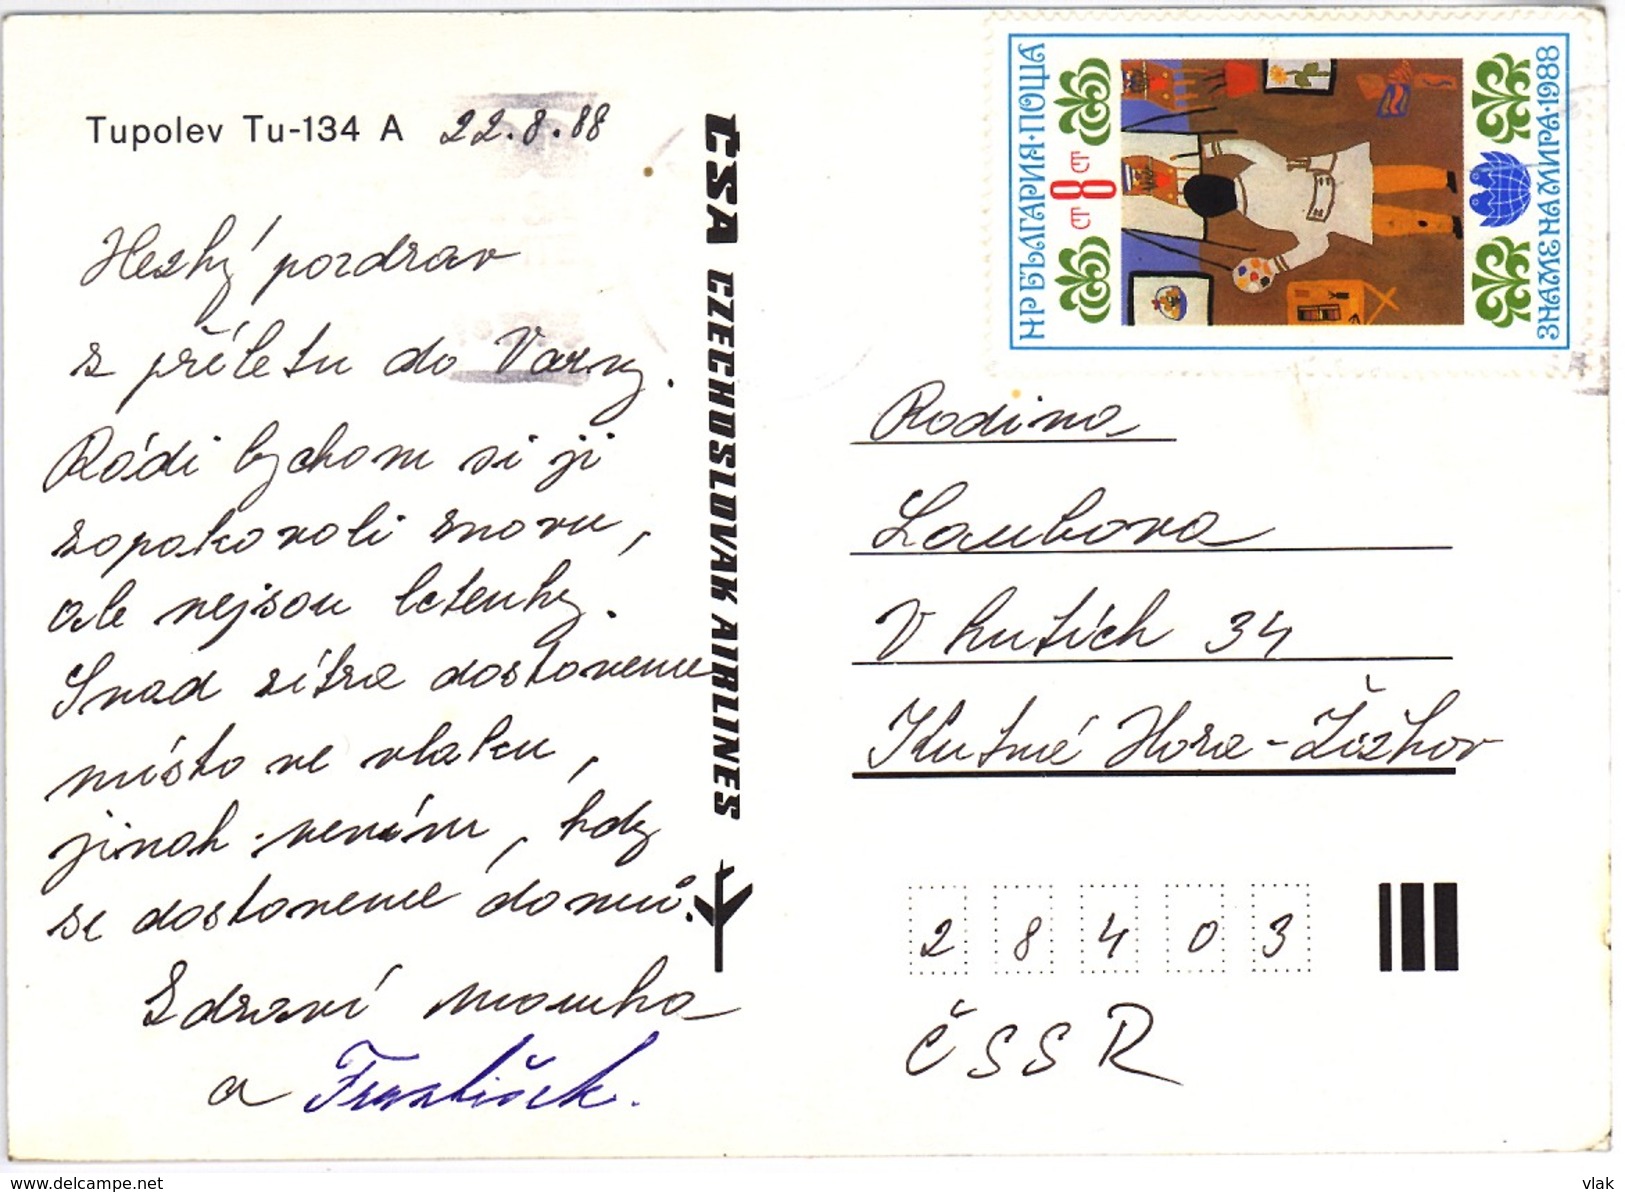 Tupolev Tu-134 A 22.8.88
Hezký pozdrav
z příletu do Varny.
Rádi bychom si ji
zopakovali znovu,
ale nejsou letenky.
Snad zítra dostaneme
místo ve vlaku,
jinak nevím, kdy
se dostaneme domů.
Zdraví mamka
a František.
ČSA CZECHOSLOVAK AIRLINES
НР БЪЛГАРИЯ·ПОЩА
8 СТ СТ
ЗНАМЕ НА МИРА·1988
Rodina
Laubova
V hutích 34
Kutná Hora - Žižkov
2 8 4 0 3
ČSSR
www.delcampe.net
vlak